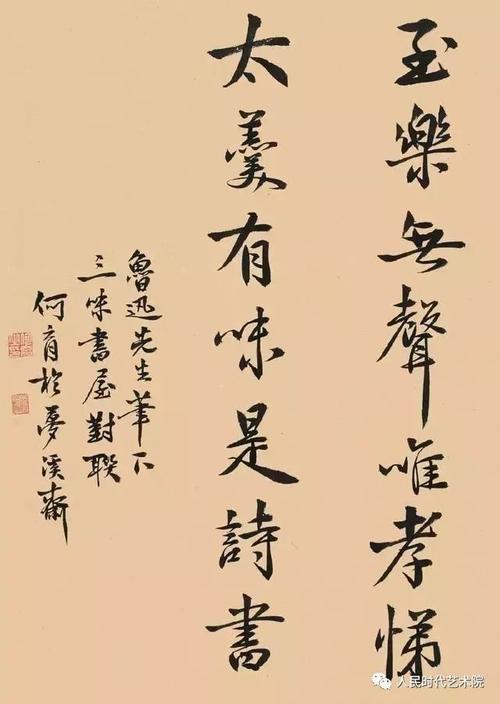 至樂無聲唯孝悌
太羹有味是詩書
魯迅先生筆下
三味書屋對聯
何育於夢溪齋
人民时代艺术院